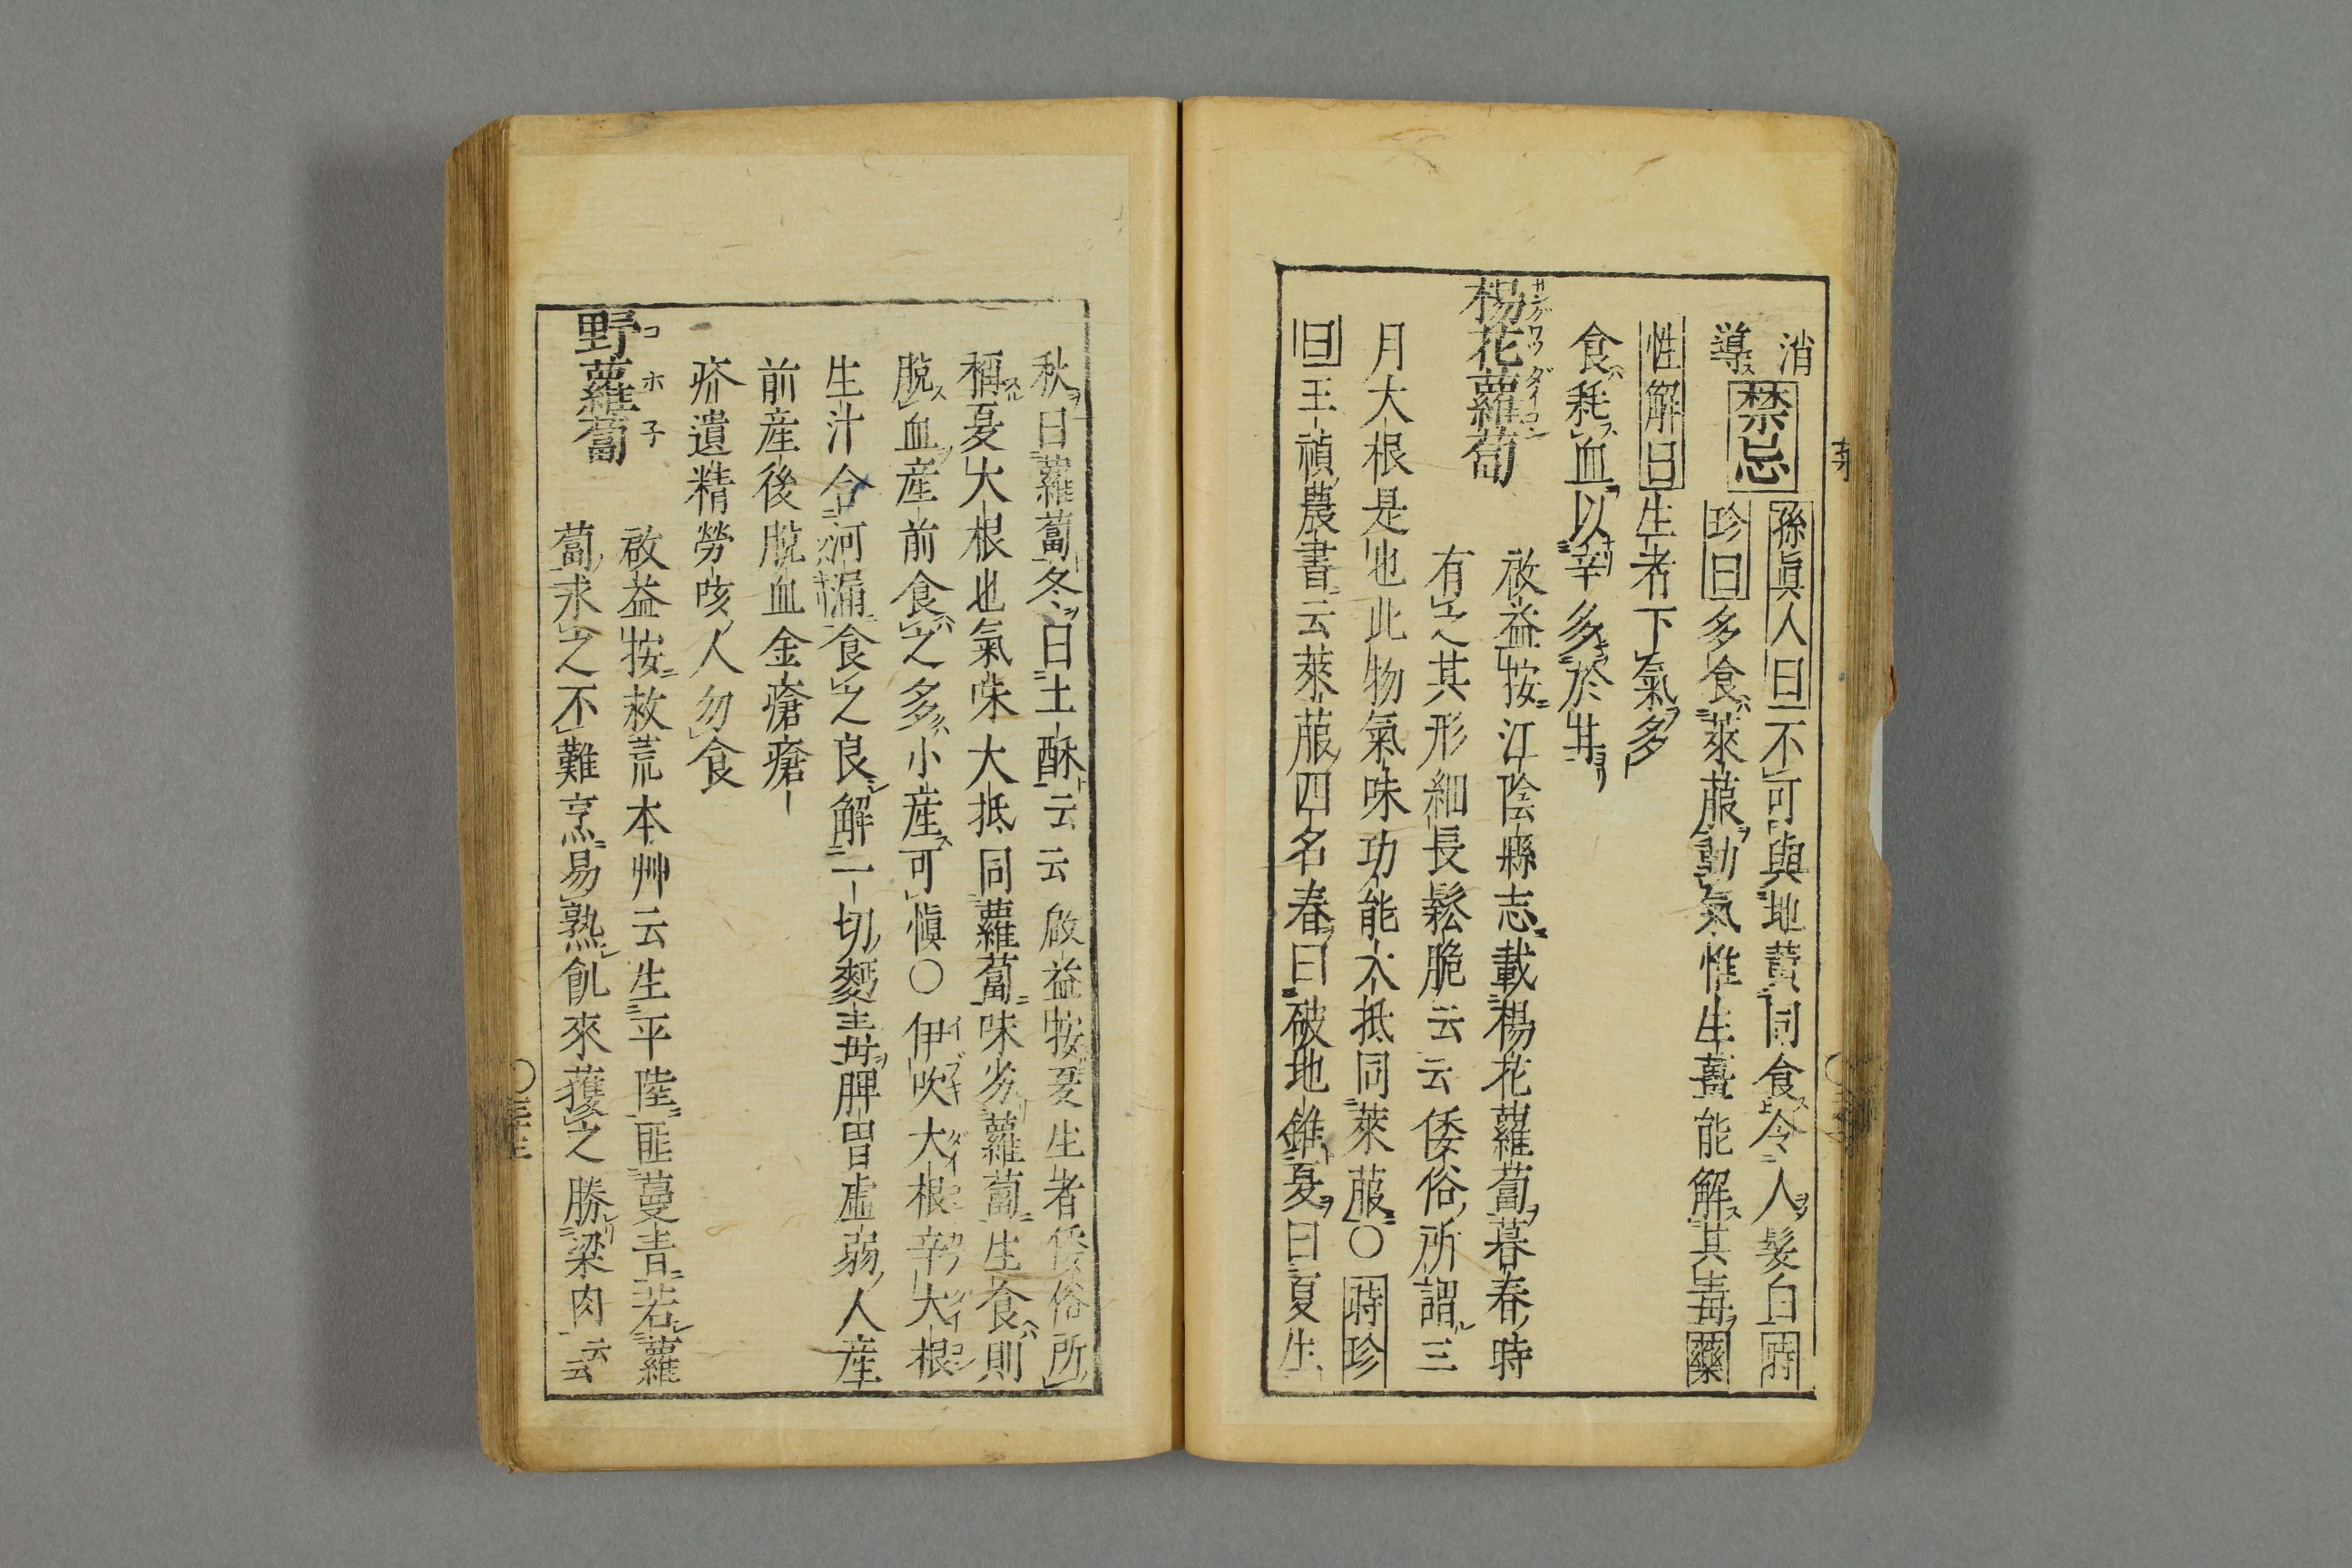 消導禁忌孫眞人曰不可與地黃同食令人髮白時
珍曰多食萊菔動氣惟生薑能解其毒藥
性解曰生者下氣多
食耗血以辛多於甘
楊花蘿蔔
啟益按江陰縣志載楊花蘿蔔暮春時
有之其形細長鬆脆云云倭俗所謂三
月大根是也此物氣味功能大抵同萊菔○時珍
曰王禎農書云萊菔四名春曰破地錐夏曰夏生
秋曰蘿蔔冬曰土酥云云啟益按夏生者倭俗所
稱夏大根也氣味大抵同蘿蔔味劣蘿蔔生食則
脫血産前食之多小産可愼○伊吹大根辛大根
生汁合河漏食之良解一切麪毒脾胃虛弱人産
前産後脫血金瘡瘡
疥遺精勞咳人勿食
野蘿蔔
啟益按救荒本艸云生平陸匪蔓青若蘿
蔔求之不難烹易熟飢來獲之勝梁肉云云